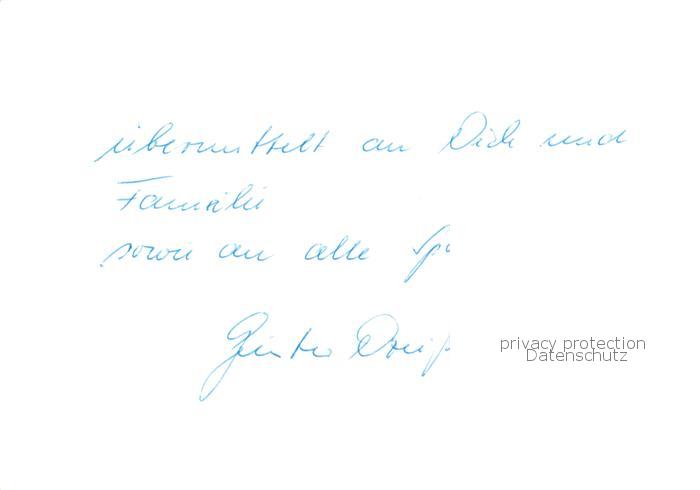 übermittelt an Dich und
Familie
sowie an alle Sp
Günter
privacy protection
Datenschutz